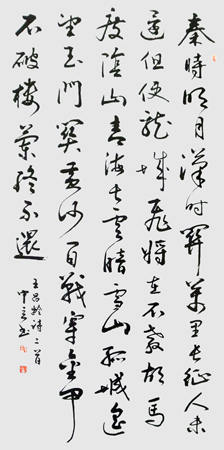 秦時明月漢時關萬里長征人未
還但使龍城飛將在不教胡馬
度陰山青海長雲暗雪山孤城遙
望玉門關黃沙百戰穿金甲
不破樓蘭終不還
王昌齡詩二首
書